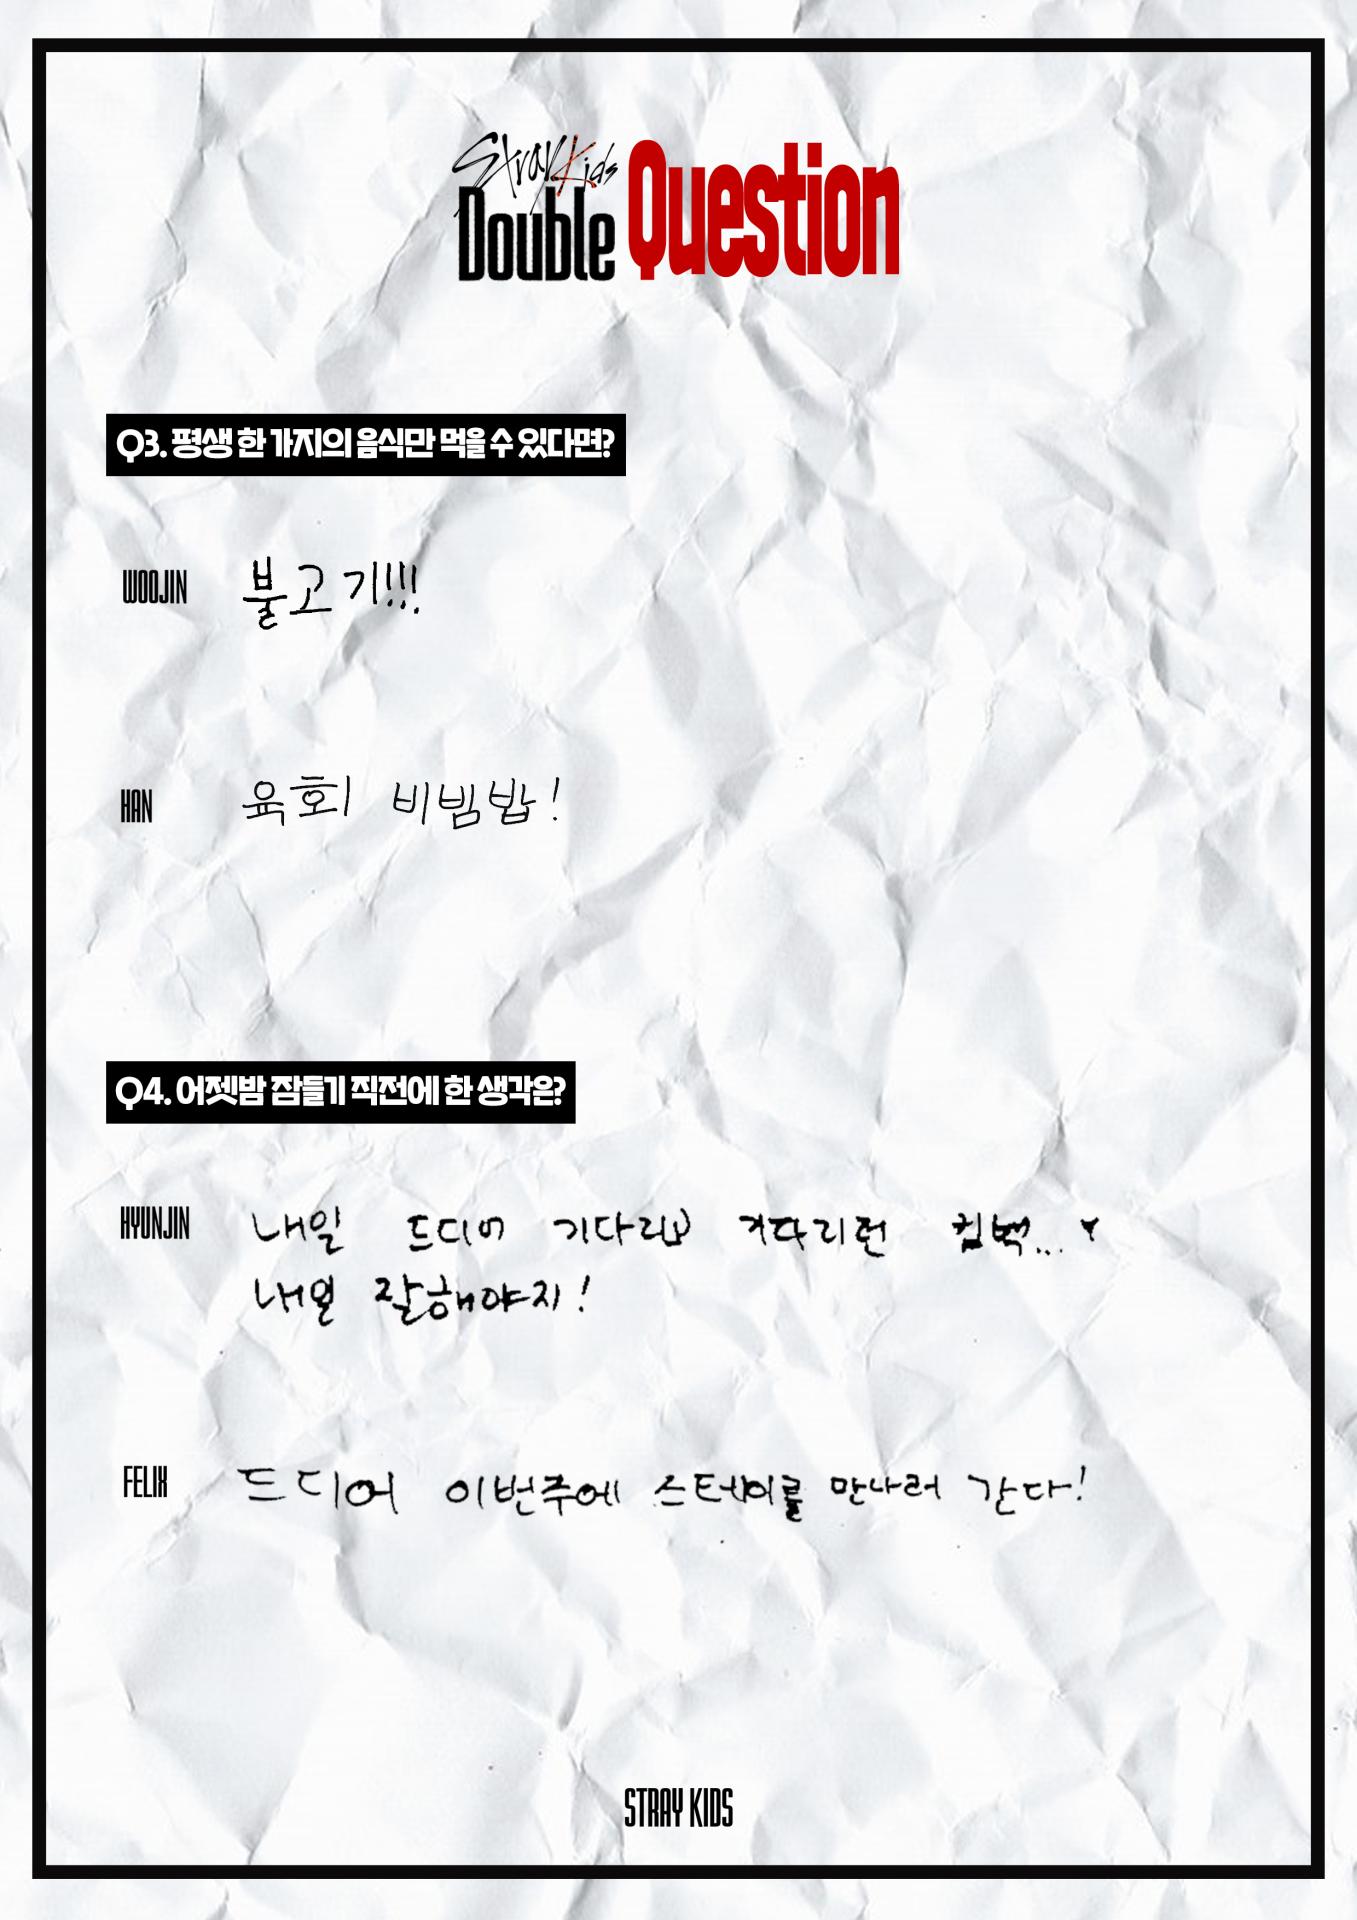 Stray Kids
Double Question
Q3. 평생 한 가지의 음식만 먹을 수 있다면?
WOOJIN 불고기!!!
HAN 육회 비빔밥!
Q4. 어젯밤 잠들기 직전에 한 생각은?
HYUNJIN 내일 드디어 기다리고 기다리던 컴백...
내일 잘해야지!
FELIX 드디어 이번주에 스테이를 만나러 간다!
STRAY KIDS